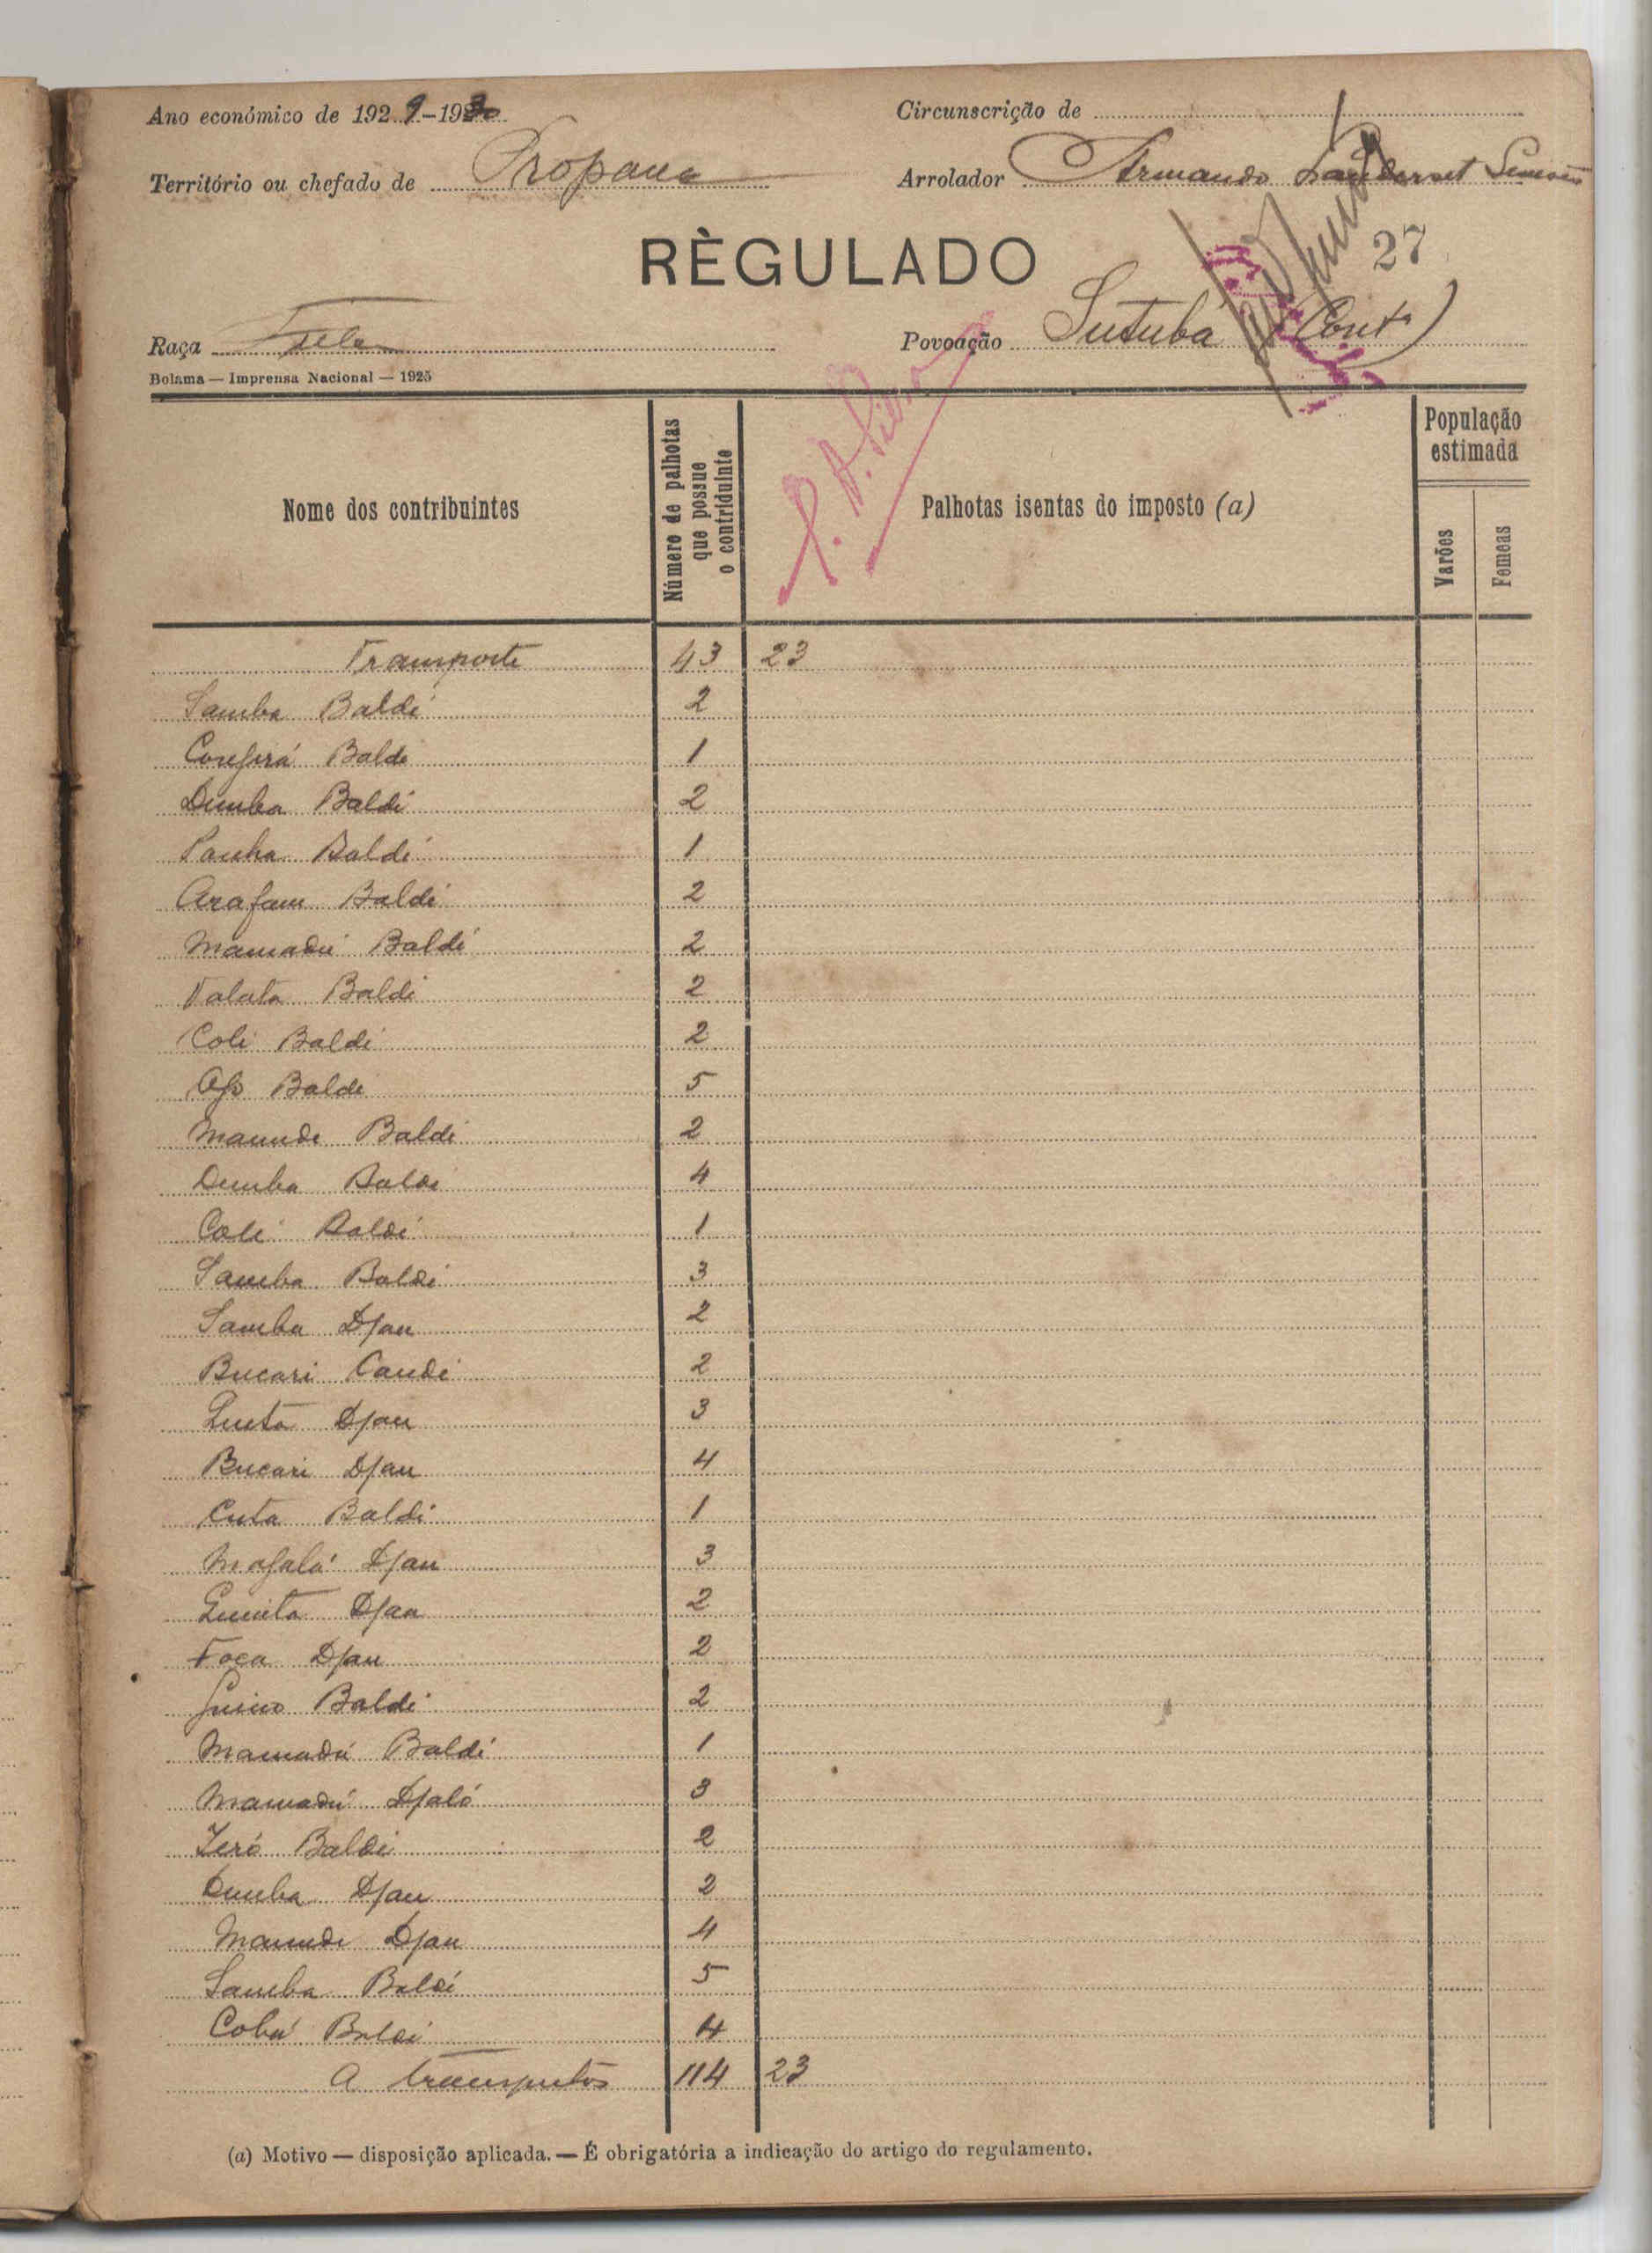 Ano económico de 1929-1930
Circunscrição de
Território ou chefado de Propana
Arrolador Armando Landerset Simões
27
RÈGULADO
Raça
Povoação Sutuba (Cont.)
Bolama — Imprensa Nacional — 1925
Nome dos contribuintes
Número de palhotas que possue o contriduinte
Palhotas isentas do imposto (a)
População estimada
Varões
Femeas
Transporte 43 23
Samba Baldé 2
Baldé 1
Demba Baldé 2
Baldé 1
Arafam Baldé 2
Mamadú Baldé 2
Valata Baldé 2
Coli Baldé 2
Baldé 5
Mamude Baldé 2
Demba Baldé 4
Coli Baldé 1
Samba Baldé 3
Samba Djau 2
Bucari Candé 2
Djau 3
Bucari Djau 4
Cuta Baldé 1
Djau 3
Djau 2
Djau 2
Baldé 2
Mamadú Baldé 1
Mamadú Djaló 3
Baldé 2
Demba Djau 2
Mamude Djau 4
Samba Baldé 5
Baldé 4
A transportar 114 23
(a) Motivo — disposição aplicada. — É obrigatória a indicação do artigo do regulamento.